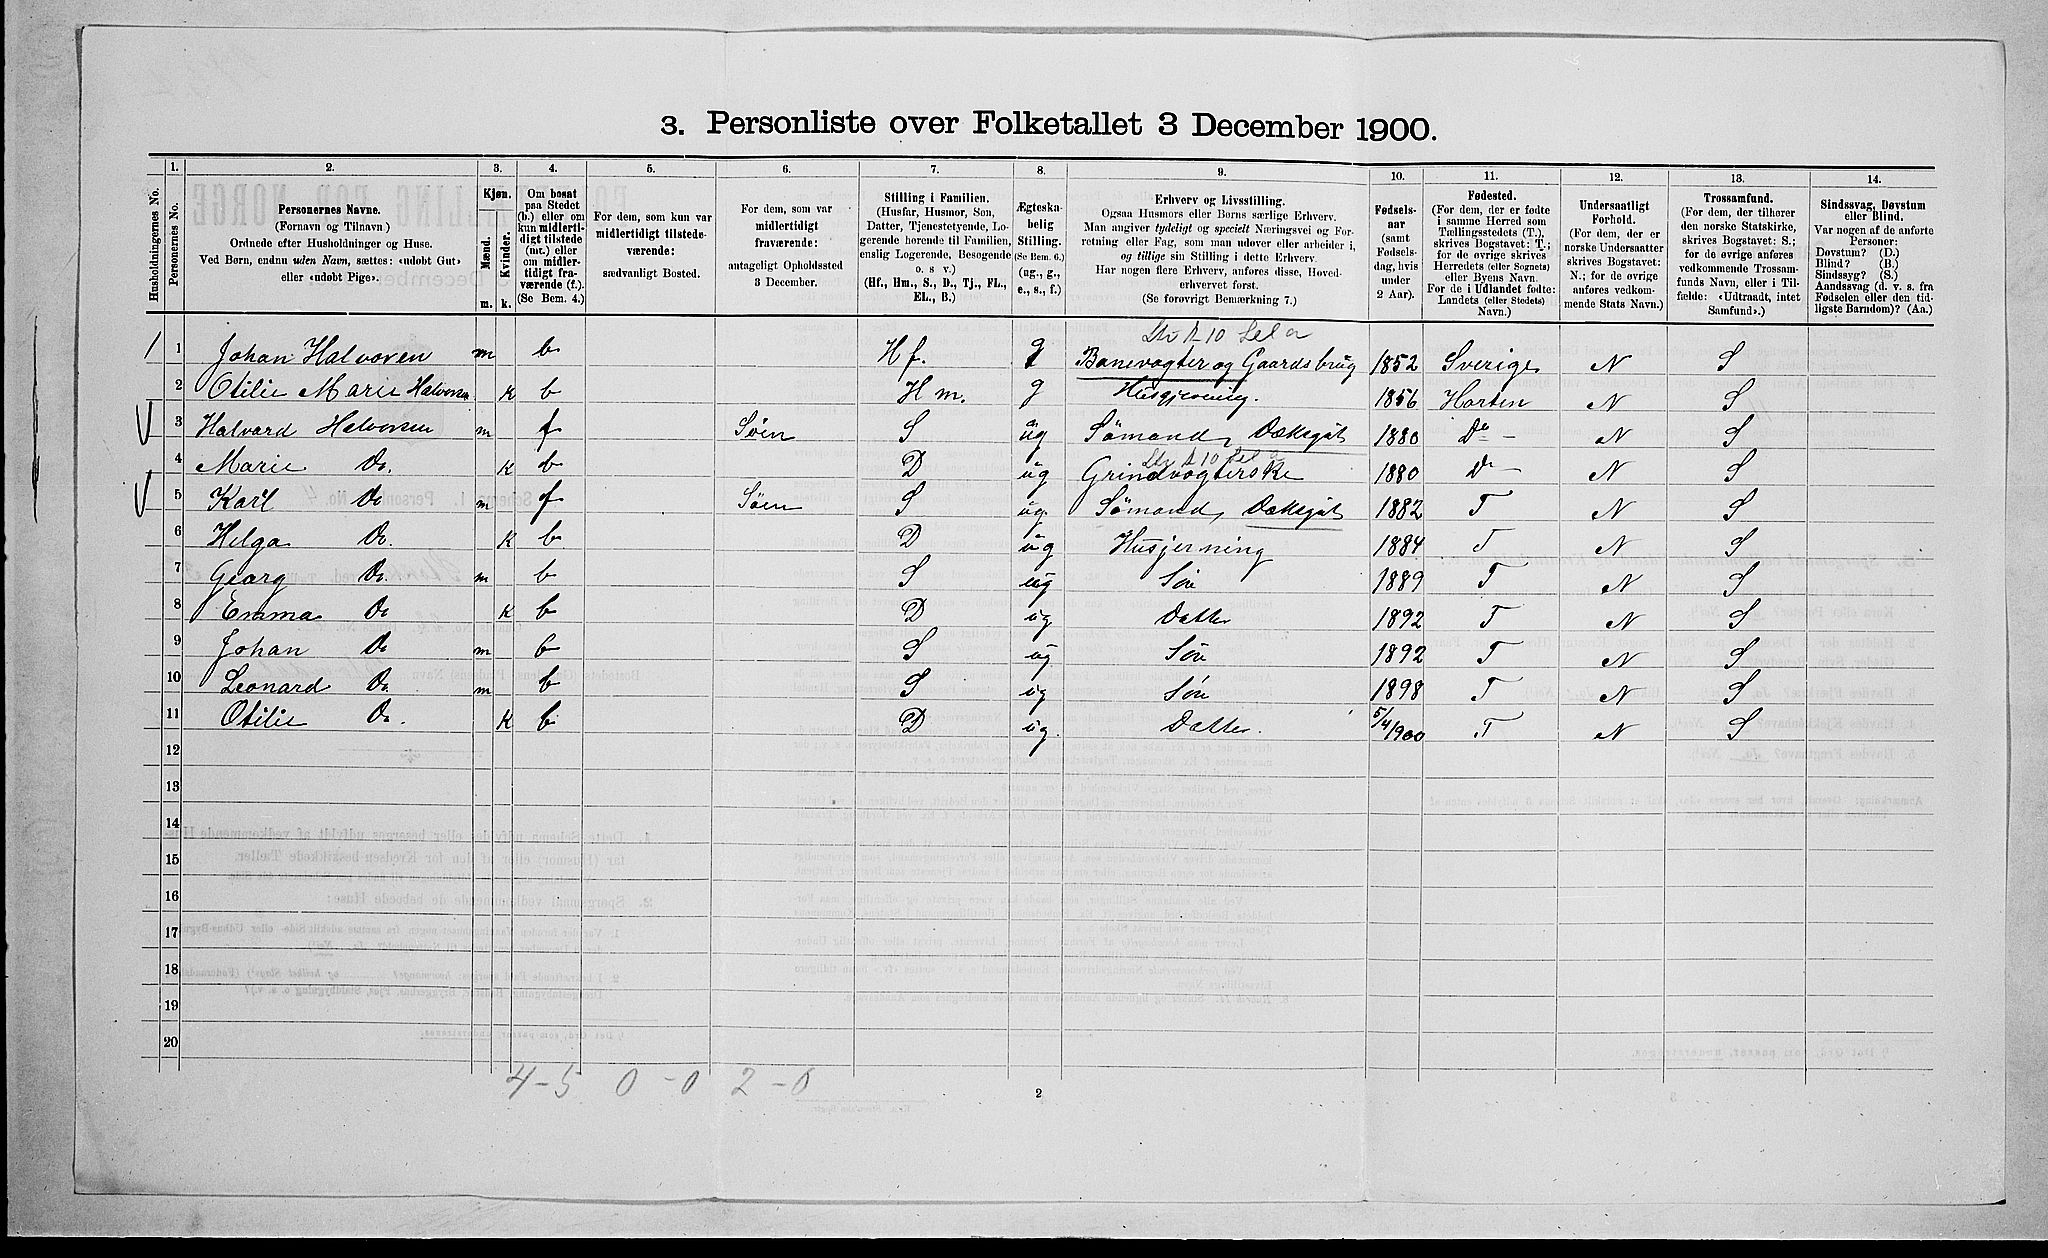 3. Personliste over Folketallet 3 December 1900.
1. 2. 3. 4. 5. 6. 7. 8. 9. 10. 11. 12. 13. 14.
Husholdningernes No.
Personernes No.
Personernes Navne.
(Fornavn og Tilnavn.)
Ordnede efter Husholdninger og Huse.
Ved Børn, endnu uden Navn, sættes: «udobt Gut»
eller «udobt Pige».
Kjøn.
Mænd.
Kvinder.
m. k.
Om bosat
paa Stedet
(b.) eller om
kun midlerti-
digt tilstede
(mt.) eller
om midler-
tidigt fra-
værende (f.).
(Se Bem. 4.)
For dem, som kun var
midlertidigt tilstede-
værende:
sædvanligt Bosted.
For dem, som var
midlertidigt
fraværende:
antageligt Opholdssted
3 December.
Stilling i Familien.
(Husfar, Husmor, Søn,
Datter, Tjenestetyende, Lo-
gerende hørende til Familien,
enslig Logerende, Besøgende
o. s v.)
(Hf., Hm., S., D., Tj., FL.,
EL., B.)
Ægteska-
belig
Stilling.
(Se Bem. 6.)
(ug., g.,
e., s., f.)
Erhverv og Livsstilling.
Ogsaa Husmors eller Børns særlige Erhverv.
Man angiver tydeligt og specielt Næringsvei og For-
retning eller Fag, som man udover eller arbeider i,
og tillige sin Stilling i dette Erhverv.
Har nogen flere Erhverv, anføres disse, Hoved-
erhvervet først.
(Se forøvrigt Bemærkning 7.)
Fødsels-
aar
(samt
Fødsels-
dag, hvis
under
2 Aar).
Fødested.
(For dem, der er fødte
i samme Herred som
Tællingsstedets (T.),
skrives Bogstavet: T.;
for de øvrige skrives
Herredets (eller Sognets)
eller Byens Navn.
For de i Udlandet fødte:
Landets (eller Stedets)
Navn.)
Undersaatligt
Forhold.
(For dem, der er
norske Undersaatter
skrives Bogstavet:
N.; for de øvrige
anføres vedkom-
mende Stats Navn.)
Trossamfund.
(For dem, der tilhører
den norske Statskirke,
skrives Bogstavet: S.;
for de øvrige anføres
vedkommende Trossam-
funds Navn, eller i Til-
fælde: «Udtraadt, intet
Samfund».)
Sindssvag, Døvstum
eller Blind.
Var nogen af de anførte
Personer:
Døvstum? (D.)
Blind? (B.)
Sindssyg? (S.)
Aandssvag (d. v. s. fra
Fødselen eller den tid-
ligste Barndom)? (Aa.)
1 Johan Halvorsen m b Hf. g Banevogter og Gaardsbrug 1852 Sverige N S
2 Otilie Marie Halvorsen k b Hm. g Husgjerning. 1856 Horten N S
3 Halvard Halvorsen m f Søen S ug Sømand, Dæksgut 1880 Do - N S
4 Marie Do. k b D ug Grindvogterske 1880 Do - N S
5 Karl Do m f Søen S ug Sømand, Dæksgut 1882 T N S
6 Helga Do. k b D ug Husjerning 1884 T N S
7 Georg Do. m b S ug Søn 1889 T N S
8 Emma Do k b D ug Datter 1892 T N S
9 Johan Do m b S ug Søn 1892 T N S
10 Leonard Do. m b S ug Søn 1898 T N S
11 Otilie Do. k b D ug. Datter. 5/4 1900 T N S
12
13
14
15
16
17
18
19
20
4-5 0-0 2-0
2